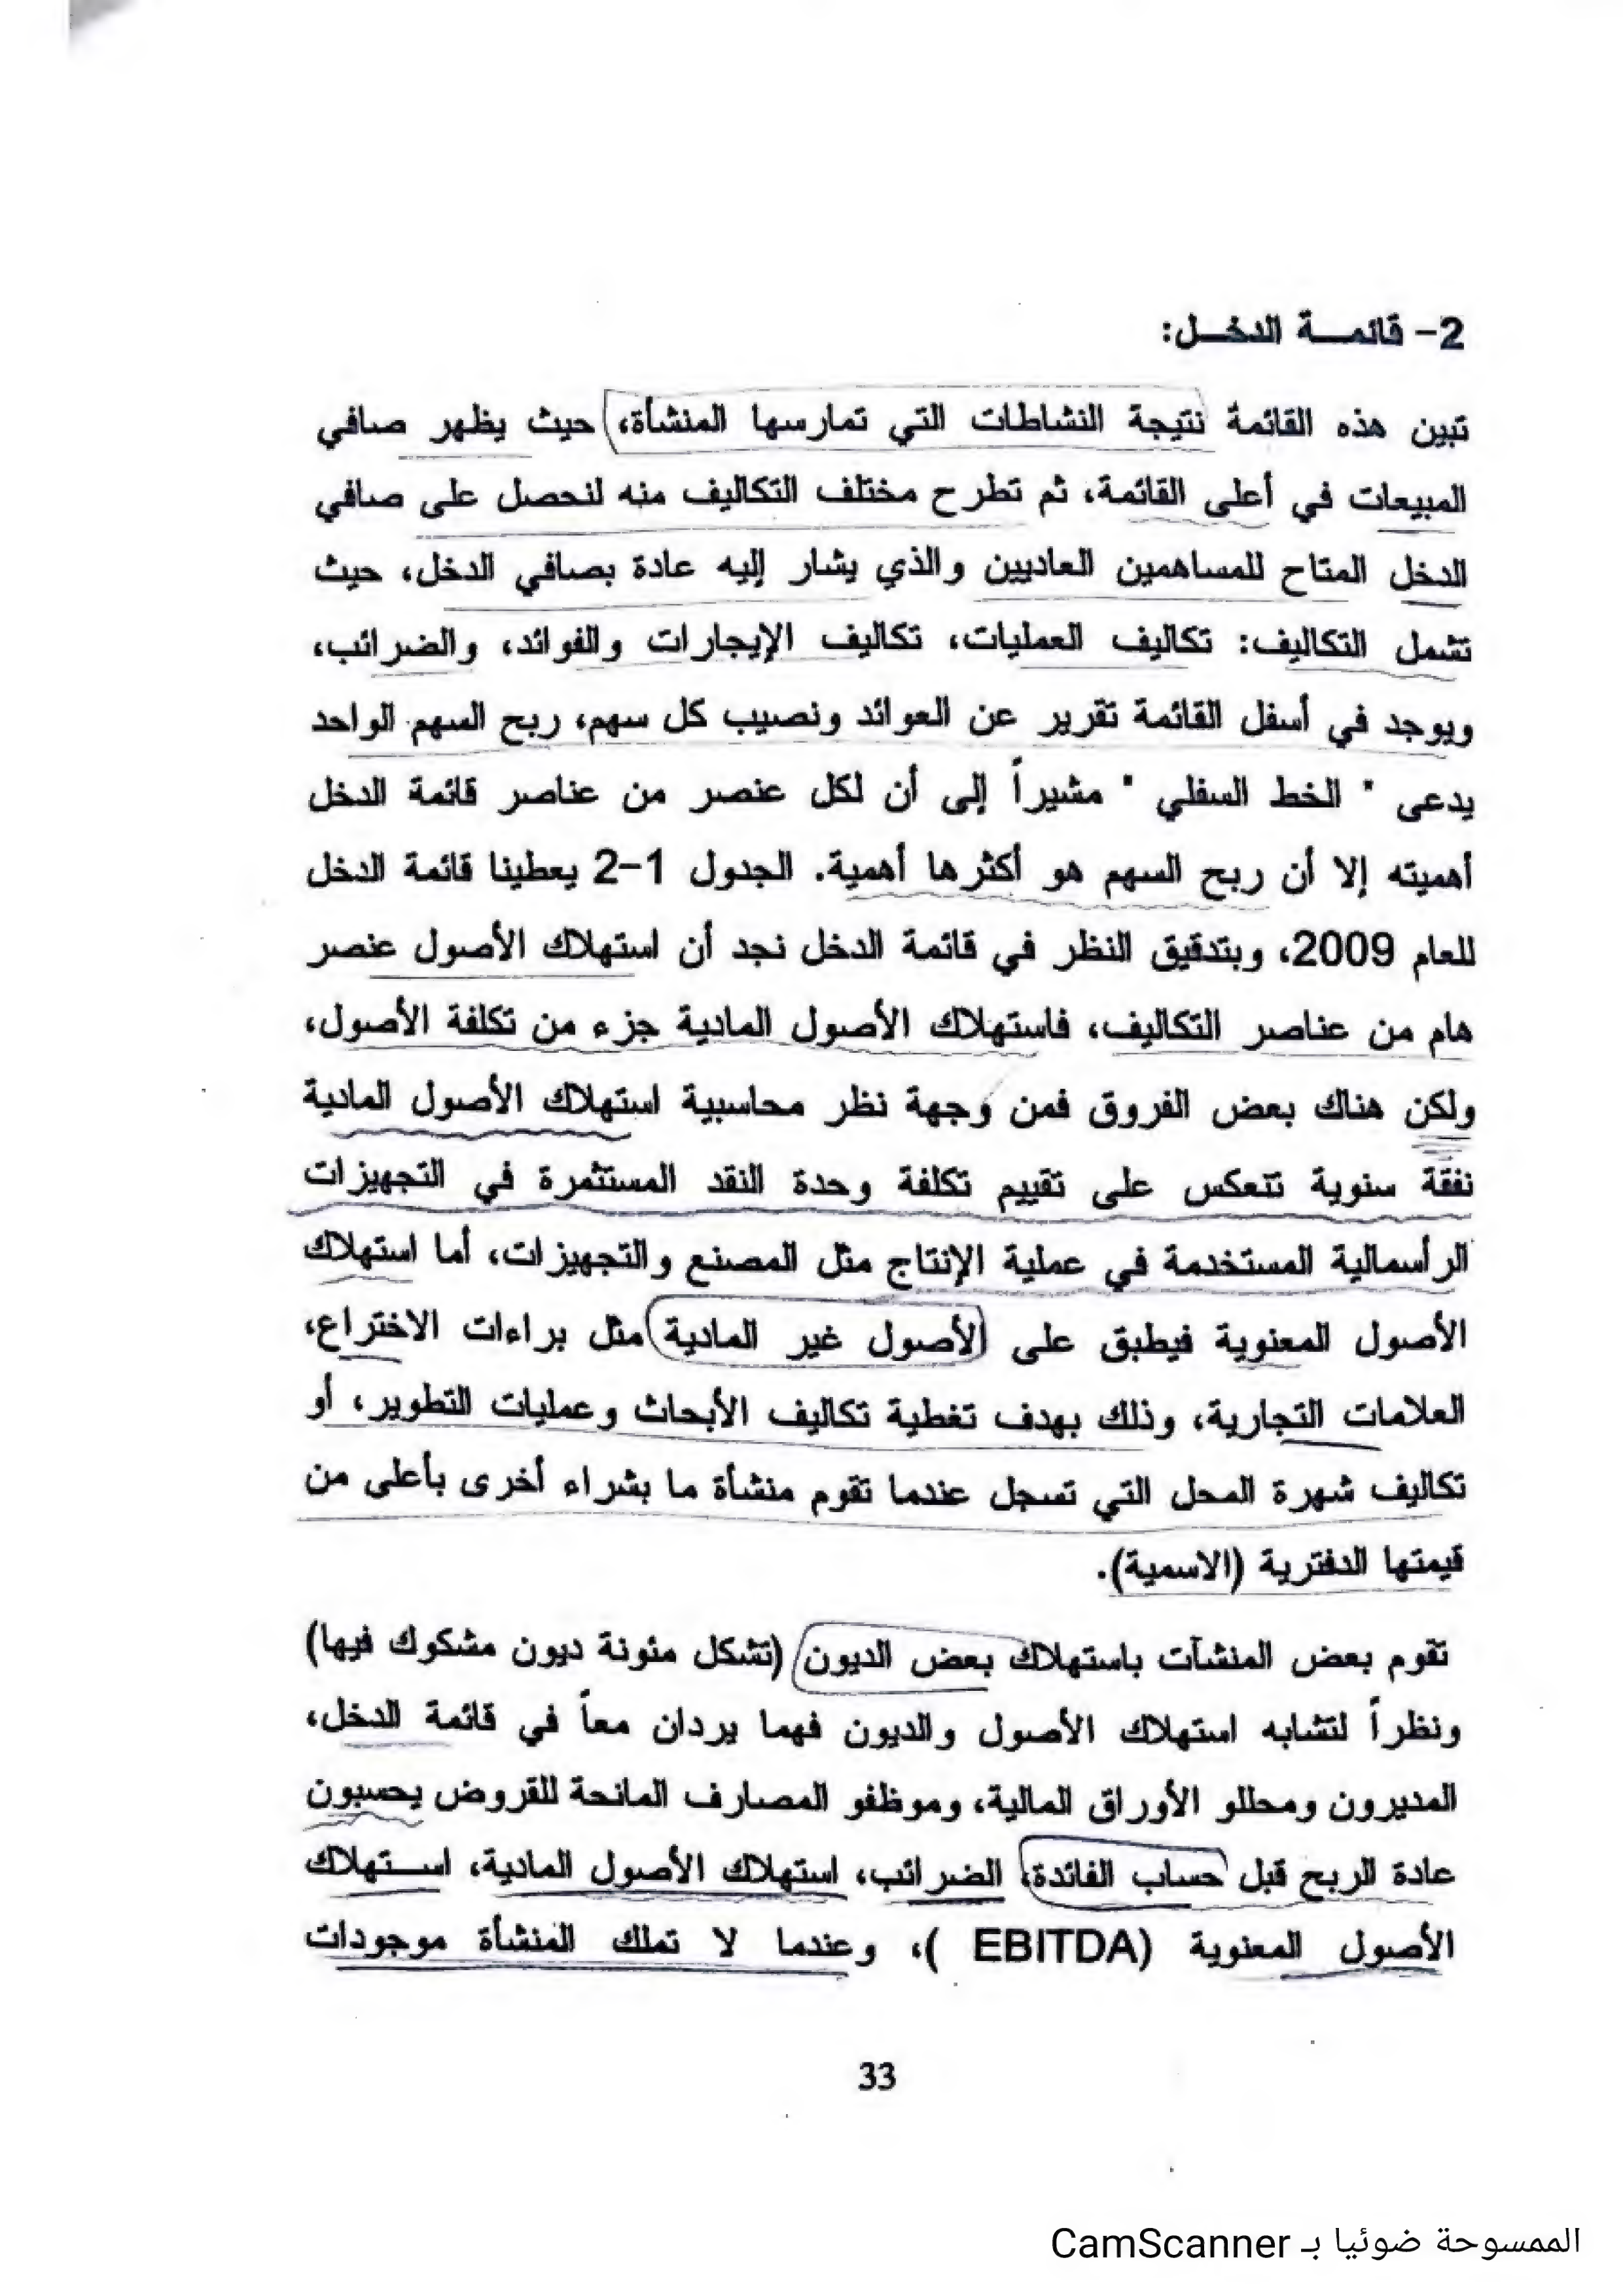 2- قائمـــة الدخــل:
تبين هذه القائمة نتيجة النشاطات التي تمارسها المنشأة، حيث يظهر صافي
المبيعات في أعلى القائمة، ثم تطرح مختلف التكاليف منه لنحصل على صافي
الدخل المتاح للمساهمين العاديين والذي يشار إليه عادة بصافي الدخل، حيث
تشمل التكاليف: تكاليف العمليات، تكاليف الإيجارات والفوائد، والضرائب،
ويوجد في أسفل القائمة تقرير عن العوائد ونصيب كل سهم، ربح السهم الواحد
يدعى " الخط السفلي " مشيراً إلى أن لكل عنصر من عناصر قائمة الدخل
أهميته إلا أن ربح السهم هو أكثرها أهمية. الجدول 1-2 يعطينا قائمة الدخل
للعام 2009، وبتدقيق النظر في قائمة الدخل نجد أن استهلاك الأصول عنصر
هام من عناصر التكاليف، فاستهلاك الأصول المادية جزء من تكلفة الأصول،
ولكن هناك بعض الفروق فمن وجهة نظر محاسبية استهلاك الأصول المادية
نفقة سنوية تنعكس على تقييم تكلفة وحدة النقد المستثمرة في التجهيزات
الرأسمالية المستخدمة في عملية الإنتاج مثل المصنع والتجهيزات، أما استهلاك
الأصول المعنوية فيطبق على الأصول غير المادية مثل براءات الاختراع،
العلامات التجارية، وذلك بهدف تغطية تكاليف الأبحاث وعمليات التطوير، أو
تكاليف شهرة المحل التي تسجل عندما تقوم منشأة ما بشراء أخرى بأعلى من
قيمتها الدفترية (الاسمية).
تقوم بعض المنشآت باستهلاك بعض الديون (تشكل مئونة ديون مشكوك فيها)
ونظراً لتشابه استهلاك الأصول والديون فهما يردان معاً في قائمة الدخل،
المديرون ومحللو الأوراق المالية، وموظفو المصارف المانحة للقروض يحسبون
عادة الربح قبل حساب الفائدة، الضرائب، استهلاك الأصول المادية، اســتهلاك
الأصول المعنوية (EBITDA )، وعندما لا تملك المنشأة موجودات
33
الممسوحة ضوئيا بـ CamScanner